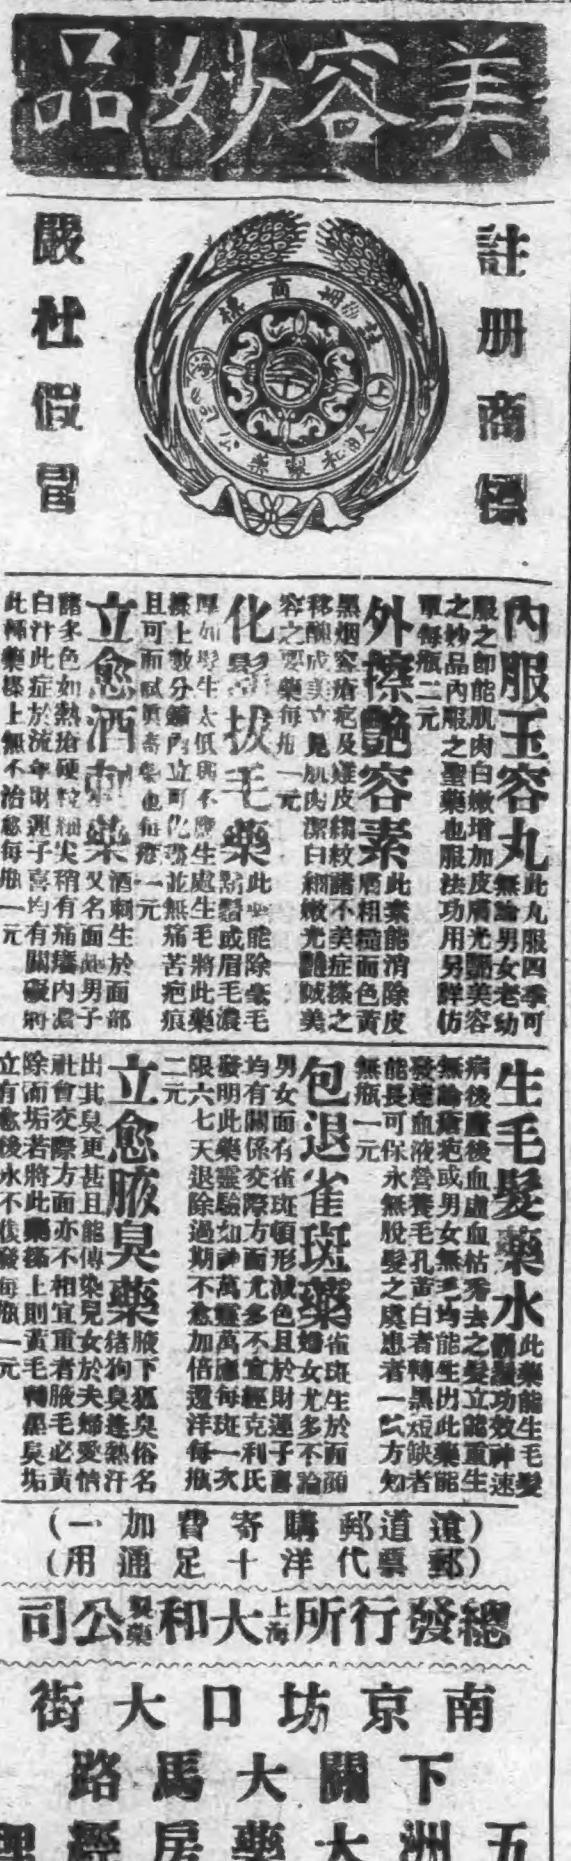 美容妙品
註册商標
嚴杜假冒
商標
上海
大和製藥公司
內服玉容丸
此丸服四季可
無論男女老幼
服之即能肌肉白嫩增加皮膚光艷美容
之妙品內服之聖藥也服法功用另詳仿
單每瓶二元
外擦艷容素
此素能消除皮
膚粗糙面色黃
黑烟容瘡疤及雞皮縐紋諸不美症擦之
移醜成美立見肌肉潔白細嫩光艷賊美
容之要藥每瓶一元
化鬚拔毛藥
此藥能除毫毛
鬍鬚或眉毛濃
厚如髮生太低與不應生處生毛將此藥
擦上數分鐘內立可化落並無痛苦疤痕
且可面試眞奇藥也每瓶一元
立愈酒刺藥
酒刺生於面部
又名面疱男子
諸多色如熱瘡硬粒細尖稍有痛癢內濃
白汁此症於流年財運子喜均有關礙將
此種藥擦上無不治愈每瓶一元
生毛髮藥水
此藥能生毛髮
鬍鬚功效神速
病後產後血虛血枯禿去之髮立能重生
無論瘡疤或男女無毛均能生出此藥能
發達血液營養毛孔黃白者轉黑短缺者
能長可保永無脫髮之虞患者一試方知
無瓶一元
包退雀斑藥
雀斑生於面頭
婦女尤多不論
男女面有雀斑頓形減色且於財運子喜
均有關係交際方面尤多不宜經克利氏
發明此藥靈驗如神萬靈萬應每斑一次
限六七天退除過期不愈加倍還洋每瓶
二元
立愈腋臭藥
腋下狐臭俗名
猪狗臭逢熱汗
出其臭更甚且能傳染兒女於夫婦愛情
社會交際方面亦不相宜重者腋毛必黃
除而垢若將此藥擦上則黃毛轉黑臭垢
立有愈後永不復發每瓶一元
(遠道郵購寄費加一)
(郵票代洋十足通用)
總發行所上海大和製藥公司
南京坊口大街
下關大馬路
五洲大藥房經理